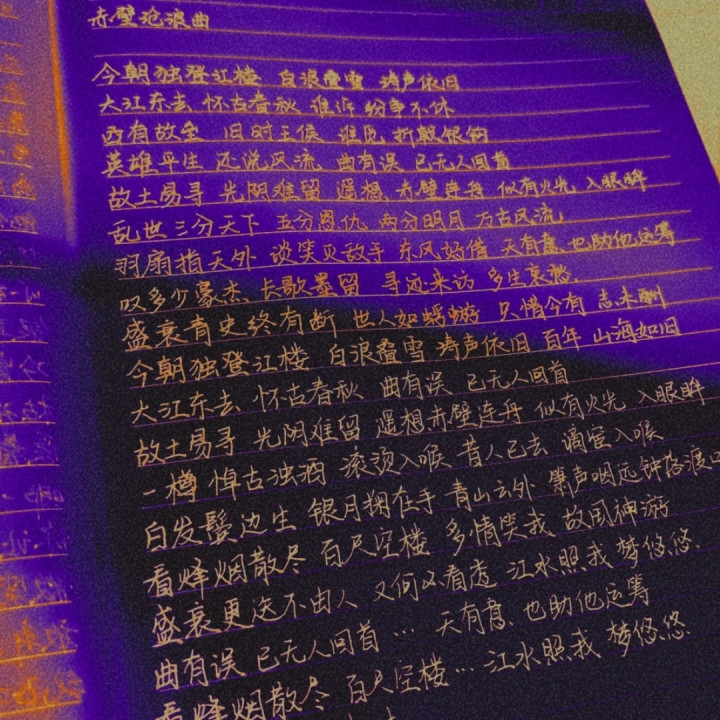 赤壁沧浪曲
今朝独登江楼 白浪叠雪 涛声依旧
大江东去 怀古春秋 谁诉 纷争不休
西有故垒 旧时王侯 谁见 折戟银钩
英雄平生 还说风流 曲有误 已无人回首
故土易寻 光阴难留 遥想 赤壁连舟 似有火光 入眼眸
乱世三分天下 五分恩仇 两分明月 万古风流
羽扇指天外 谈笑灭敌手 东风妈借 天有意 也助他运筹
叹多少豪杰 长歌墨留 寻迹来访 多生哀愁
盛衰青史终有断 世人如蜉蝣 只惜今有 志未酬
今朝独登江楼 白浪叠雪 涛声依旧 百年 山海如旧
大江东去 怀古春秋 曲有误 已无人回首
故土易寻 光阴难留 遥想赤壁连舟 似有火光 入眼眸
一樽 悼古浊酒 滚烫入喉 昔人已去 滴蜜入喉
白发鬓边生 银月掬在手 青山云外 箫声咽远钟落渡口
看烽烟散尽 百尺空楼 多情笑我 故国神游
盛衰更迭不由人 又何必看透 江水照我 梦悠悠
曲有误 已无人回首 … 天有意 也助他运筹
看烽烟散尽 百尺空楼 … 江水照我 梦悠悠